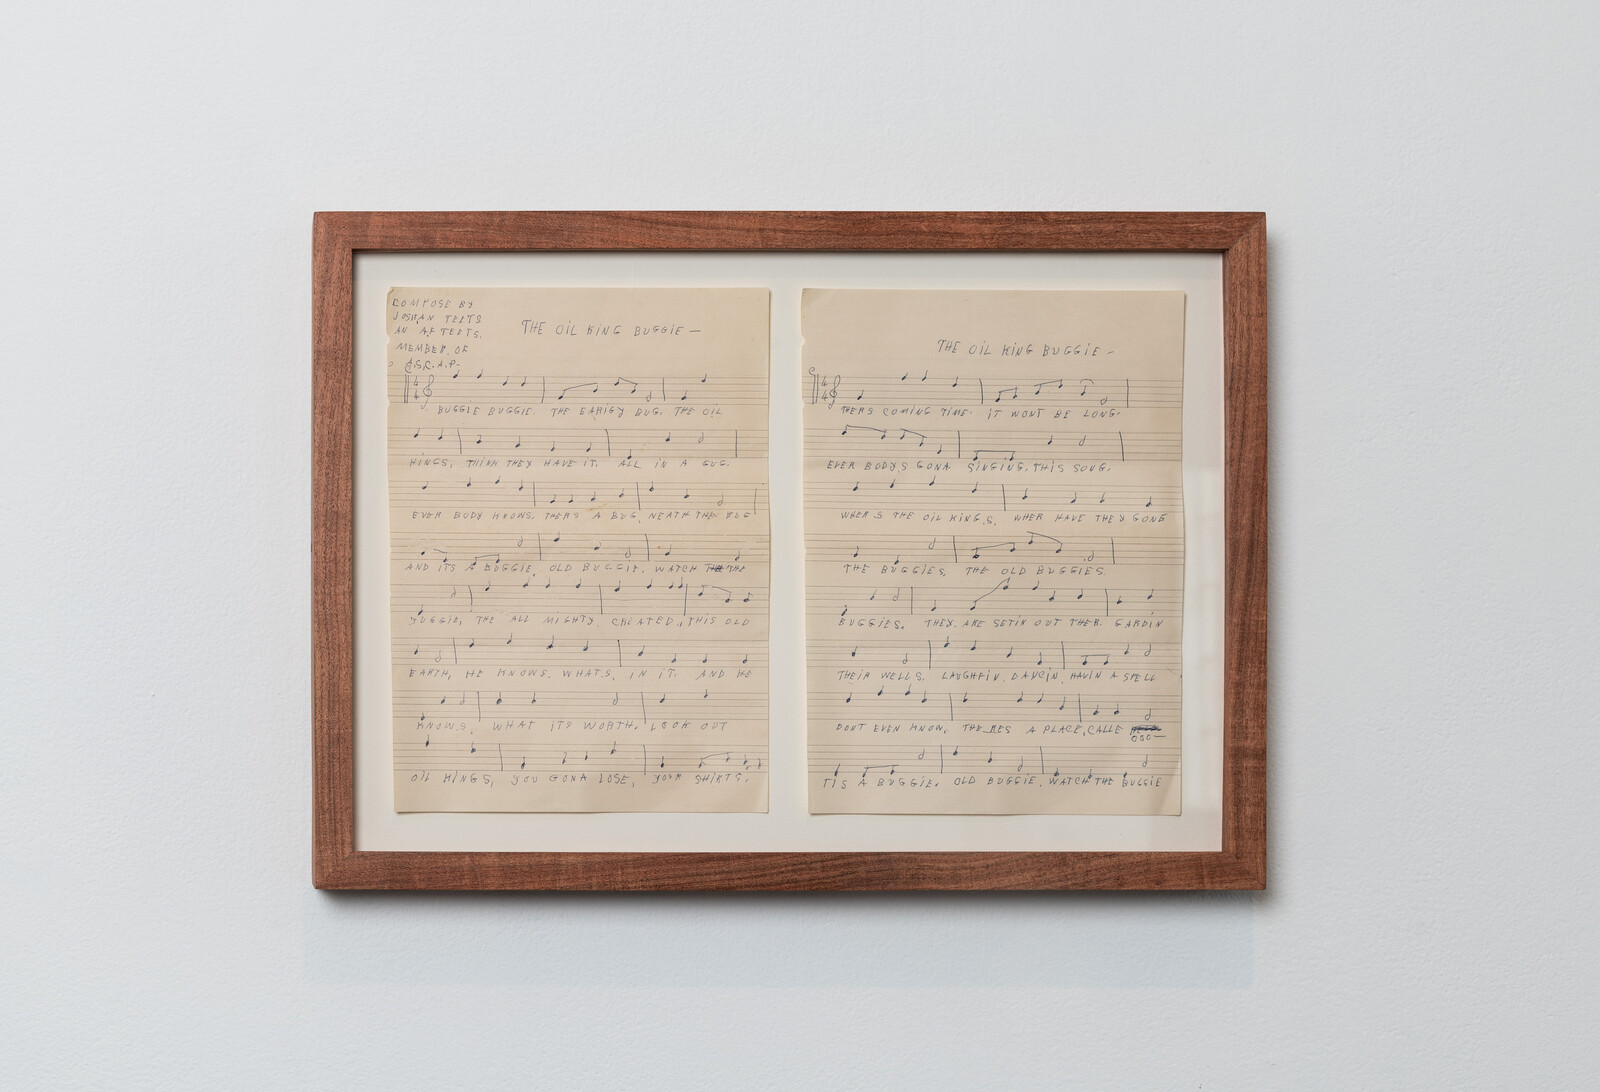 COMPOSE BY
JOSHAN TEETS
AN A.F. TEETS.
MEMBER, OF
A.S.C.A.P-
THE OIL KING BUGGIE —
4 4
BUGGIE BUGGIE. THE EARIGY BUG. THE OIL
KINGS, THINK THEY HAVE IT. ALL IN A GUG.
EVER BODY KNOWS. THERS A BUG, NEATH THE RUG
AND ITS A BUGGIE. OLD BUGGIE. WATCH THE THE
BUGGIE, THE ALL MIGHTY CREATED, THIS OLD
EARTH, HE KNOWS. WHATS, IN IT. AND HE
KNOWS, WHAT ITS WORTH. LOOK OUT
OIL KINGS, YOU GONA LOSE, YOUR SHIRTS.
THE OIL KING BUGGIE -
4 4
THERS COMING TIME. IT WONT BE LONG.
EVER BODYS GONA SINGING, THIS SONG.
WHERS THE OIL KING,S, WHER HAVE THEY GONE
THE BUGGIES, THE OLD BUGGIES.
BUGGIES. THEY. ARE SETIN OUT THER. GARDIN
THEIR WELLS. LAUGHFIN. DANCIN, HAVIN A SPELL
DONT EVEN KNOW, THE RES A PLACE, CALLE
TIS A BUGGIE. OLD BUGGIE. WATCH THE BUGGIE